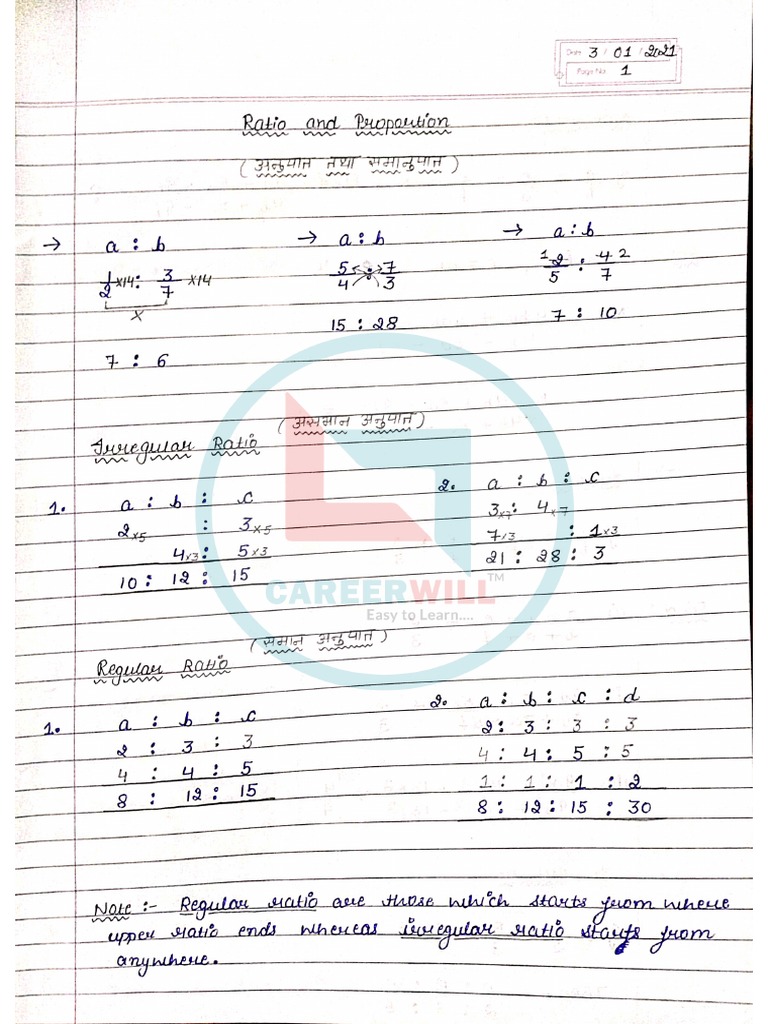 Date 3 / 01 / 2021
Page No. 1
Ratio and Proportion
(अनुपात तथा समानुपात)
→ a : b → a : b → a : b
1/2 ×14 : 3/7 ×14 5/4 : 7/3 1 2/5 : 4/7 2
×
15 : 28 7 : 10
7 : 6
(असमान अनुपात)
Irregular Ratio
1. a : b : c 2. a : b : c
2×5 : 3×5 3×7 : 4×7
4×3 : 5×3 7×3 : 1×3
10 : 12 : 15 21 : 28 : 3
CAREERWILL™
Easy to Learn....
(समान अनुपात)
Regular Ratio
1. a : b : c 2. a : b : c : d
2 : 3 : 3 2 : 3 : 3 : 3
4 : 4 : 5 4 : 4 : 5 : 5
8 : 12 : 15 1 : 1 : 1 : 2
8 : 12 : 15 : 30
Note :- Regular ratio are those which starts from where
upper ratio ends whereas irregular ratio starts from
anywhere.